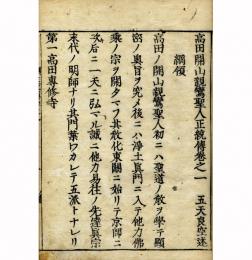 高田開山親鸞聖人正統傳巻之一
五天良空述
綱領
高田ノ開山親鸞聖人初ニハ聖道ノ教ヲ學テ顯
密ノ奥旨ヲ究メ後ニハ浄土真門ニ入テ他力佛
乗ノ宗ヲ開タマフ其教化東關ニ始リテ京師ニ
及后ニ一天ニ弘マル誠ニ他力易往ノ先達真宗
末代ノ明師ナリ其門葉ワカレテ五派トナレリ
第一高田専修寺